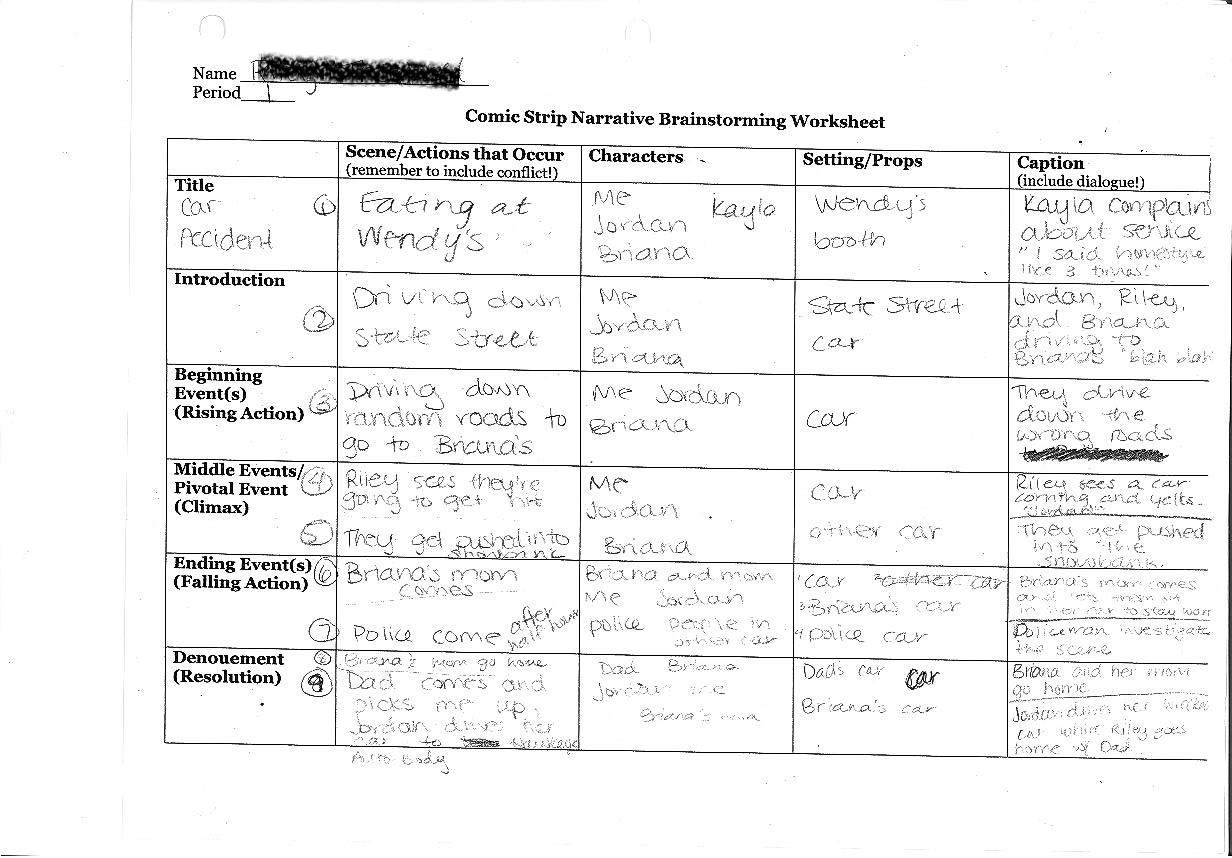 Name
Period 1
Comic Strip Narrative Brainstorming Worksheet
Scene/Actions that Occur
(remember to include conflict!)
Characters
Setting/Props
Caption
(include dialogue!)
Title
Car
Accident
①
Eating at
Wendy's
Me
Kayla
Jordan
Briana
Wendy's
booth
Kayla complains
about service
"I said homestyle
like 3 times!"
Introduction
②
Driving down
State Street
Me
Jordan
Briana
State Street
car
Jordan, Riley,
and Briana
driving to
Briana's "blah blah
Beginning
Event(s)
(Rising Action)
③
Driving down
random roads to
go to Briana's
Me Jordan
Briana
car
They drive
down the
wrong roads
Middle Events/
Pivotal Event
(Climax)
④
Riley sees they're
going to get hit
⑤
They get pushed into
Me
Jordan
Briana
car
other car
Riley sees a car
coming and yells.
"Jordan!"
They get pushed
into the
snowbank.
Ending Event(s)
(Falling Action)
⑥
Briana's mom
comes
⑦
Police come after
half hour
Briana and mom
Me Jordan
police people in
other car
1 car 2 other car
3 Briana's car
4 police car
Briana's mom comes
and lets them sit
in her car to stay warm
Policeman investigate
the scene
Denouement
(Resolution)
⑧
Briana & mom go home
⑨
Dad comes and
picks me up,
Jordan drives her
car to
Auto Body
Dad Briana
Jordan me
Briana's mom
Dads car car
Briana's car
Briana and her mom
go home
Jordan drives her
car while Riley goes
home w/ Dad.